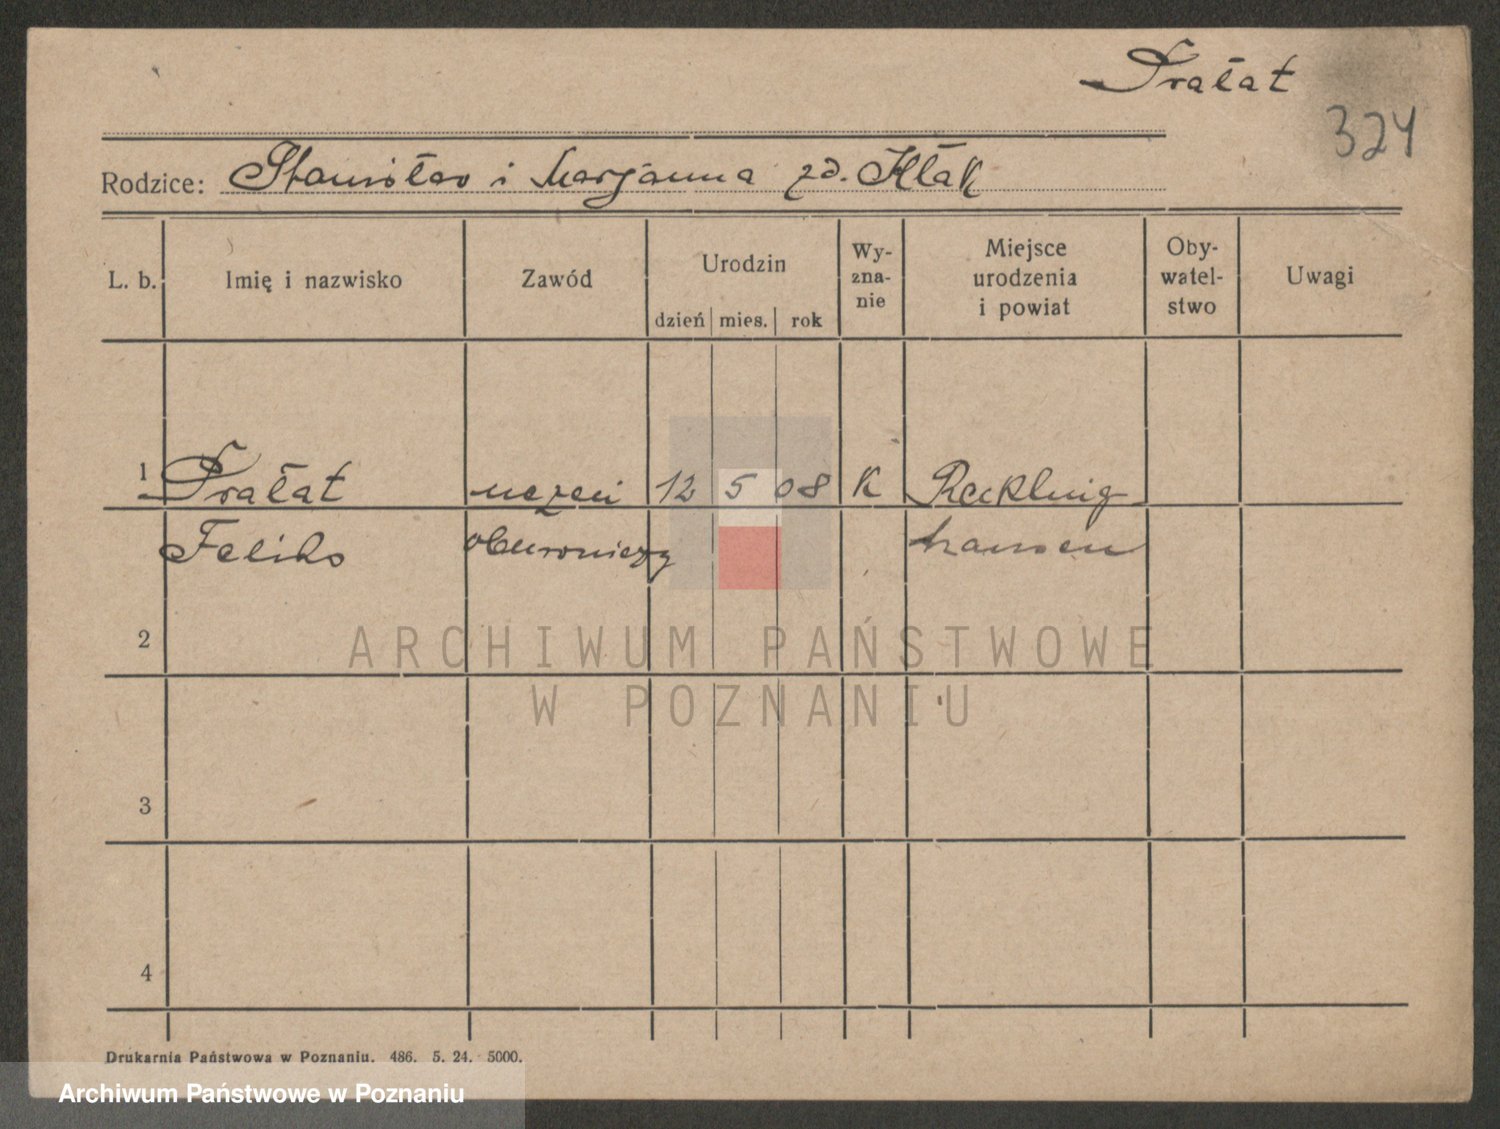 Prałat
324
Rodzice: Stanisław i Marjanna zd. Kłak
L. b. Imię i nazwisko Zawód Urodzin dzień mies. rok Wy-zna-nie Miejsce urodzenia i powiat Oby-watel-stwo Uwagi
1 Prałat uczeń 12 5 08 K Reckling
Feliks hausen
2
3
4
ARCHIWUM PAŃSTWOWE
W POZNANIU
Drukarnia Państwowa w Poznaniu. 486. 5. 24. 5000.
Archiwum Państwowe w Poznaniu